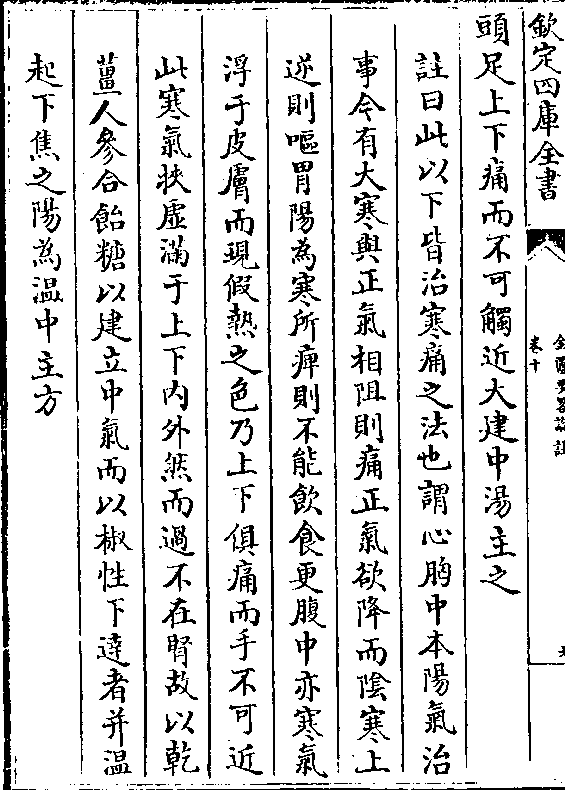 欽定四庫全書
金匱要畧論註
卷十
九
頭足上下痛而不可觸近大建中湯主之
註曰此以下皆治寒痛之法也謂心胸中本陽氣治
事今有大寒與正氣相阻則痛正氣欲降而陰寒上
逆則嘔胃陽為寒所痺則不能飲食更腹中亦寒氣
浮于皮膚而現假熱之色乃上下俱痛而手不可近
此寒氣挾虛滿于上下內外然而過不在腎故以乾
薑人參合飴糖以建立中氣而以椒性下達者并溫
起下焦之陽為溫中主方